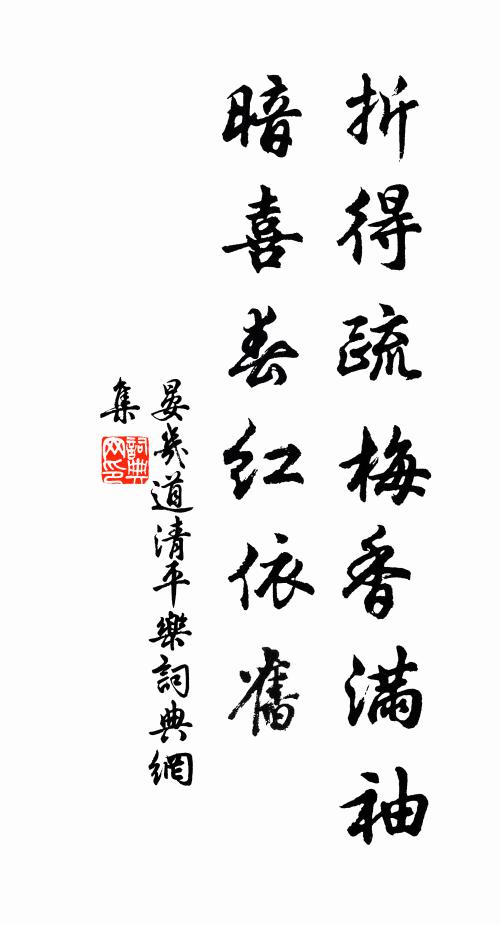 折得疏梅香滿袖
暗喜春紅依舊
晏幾道清平樂詞典網
集
詞典
网印